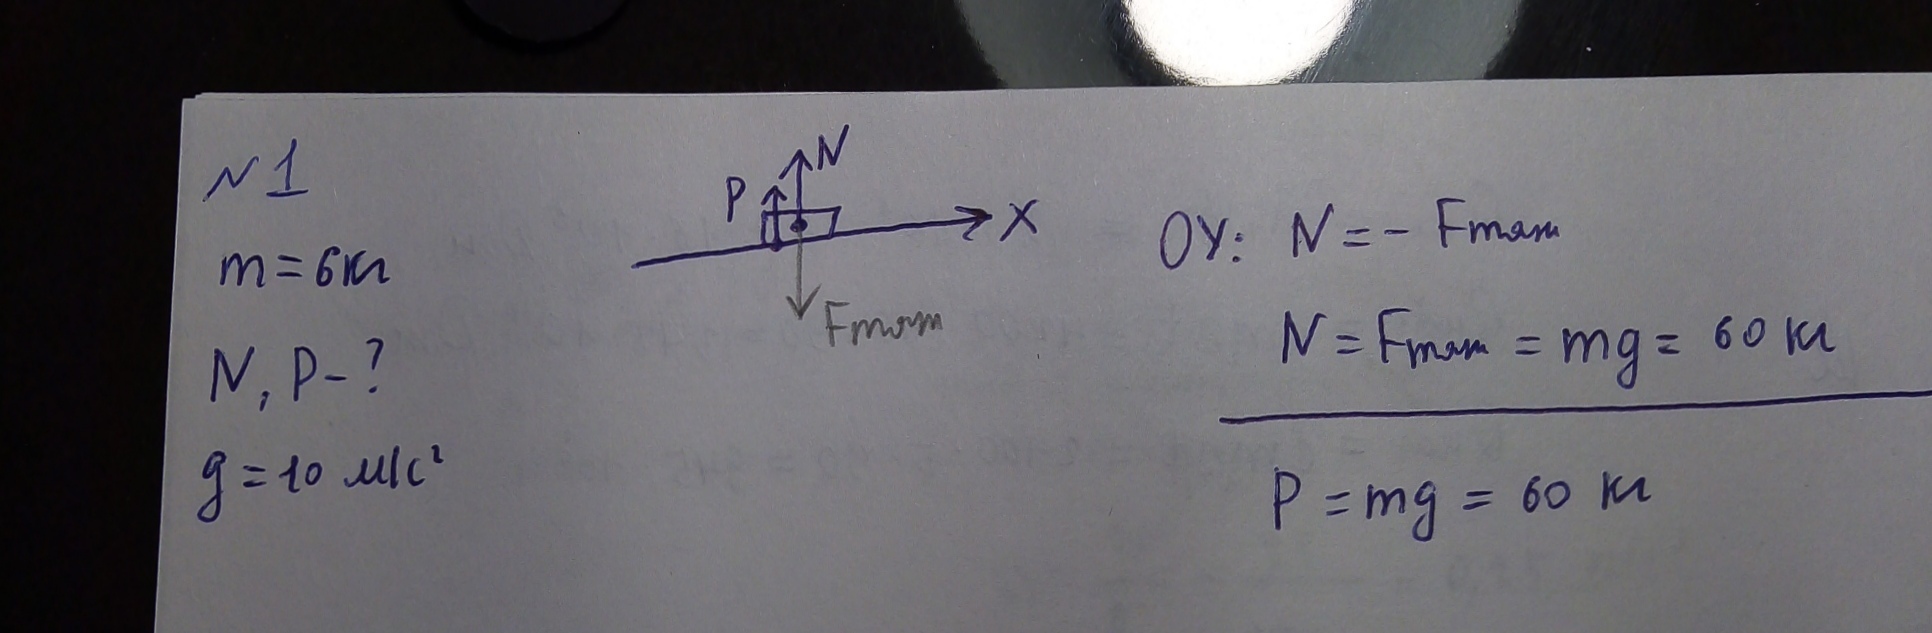 №1
m = 6 кг
N, P - ?
g = 10 м/с²
N
P
X
Fтяж
OY: N = - Fтяж
N = Fтяж = mg = 60 кг
P = mg = 60 кг